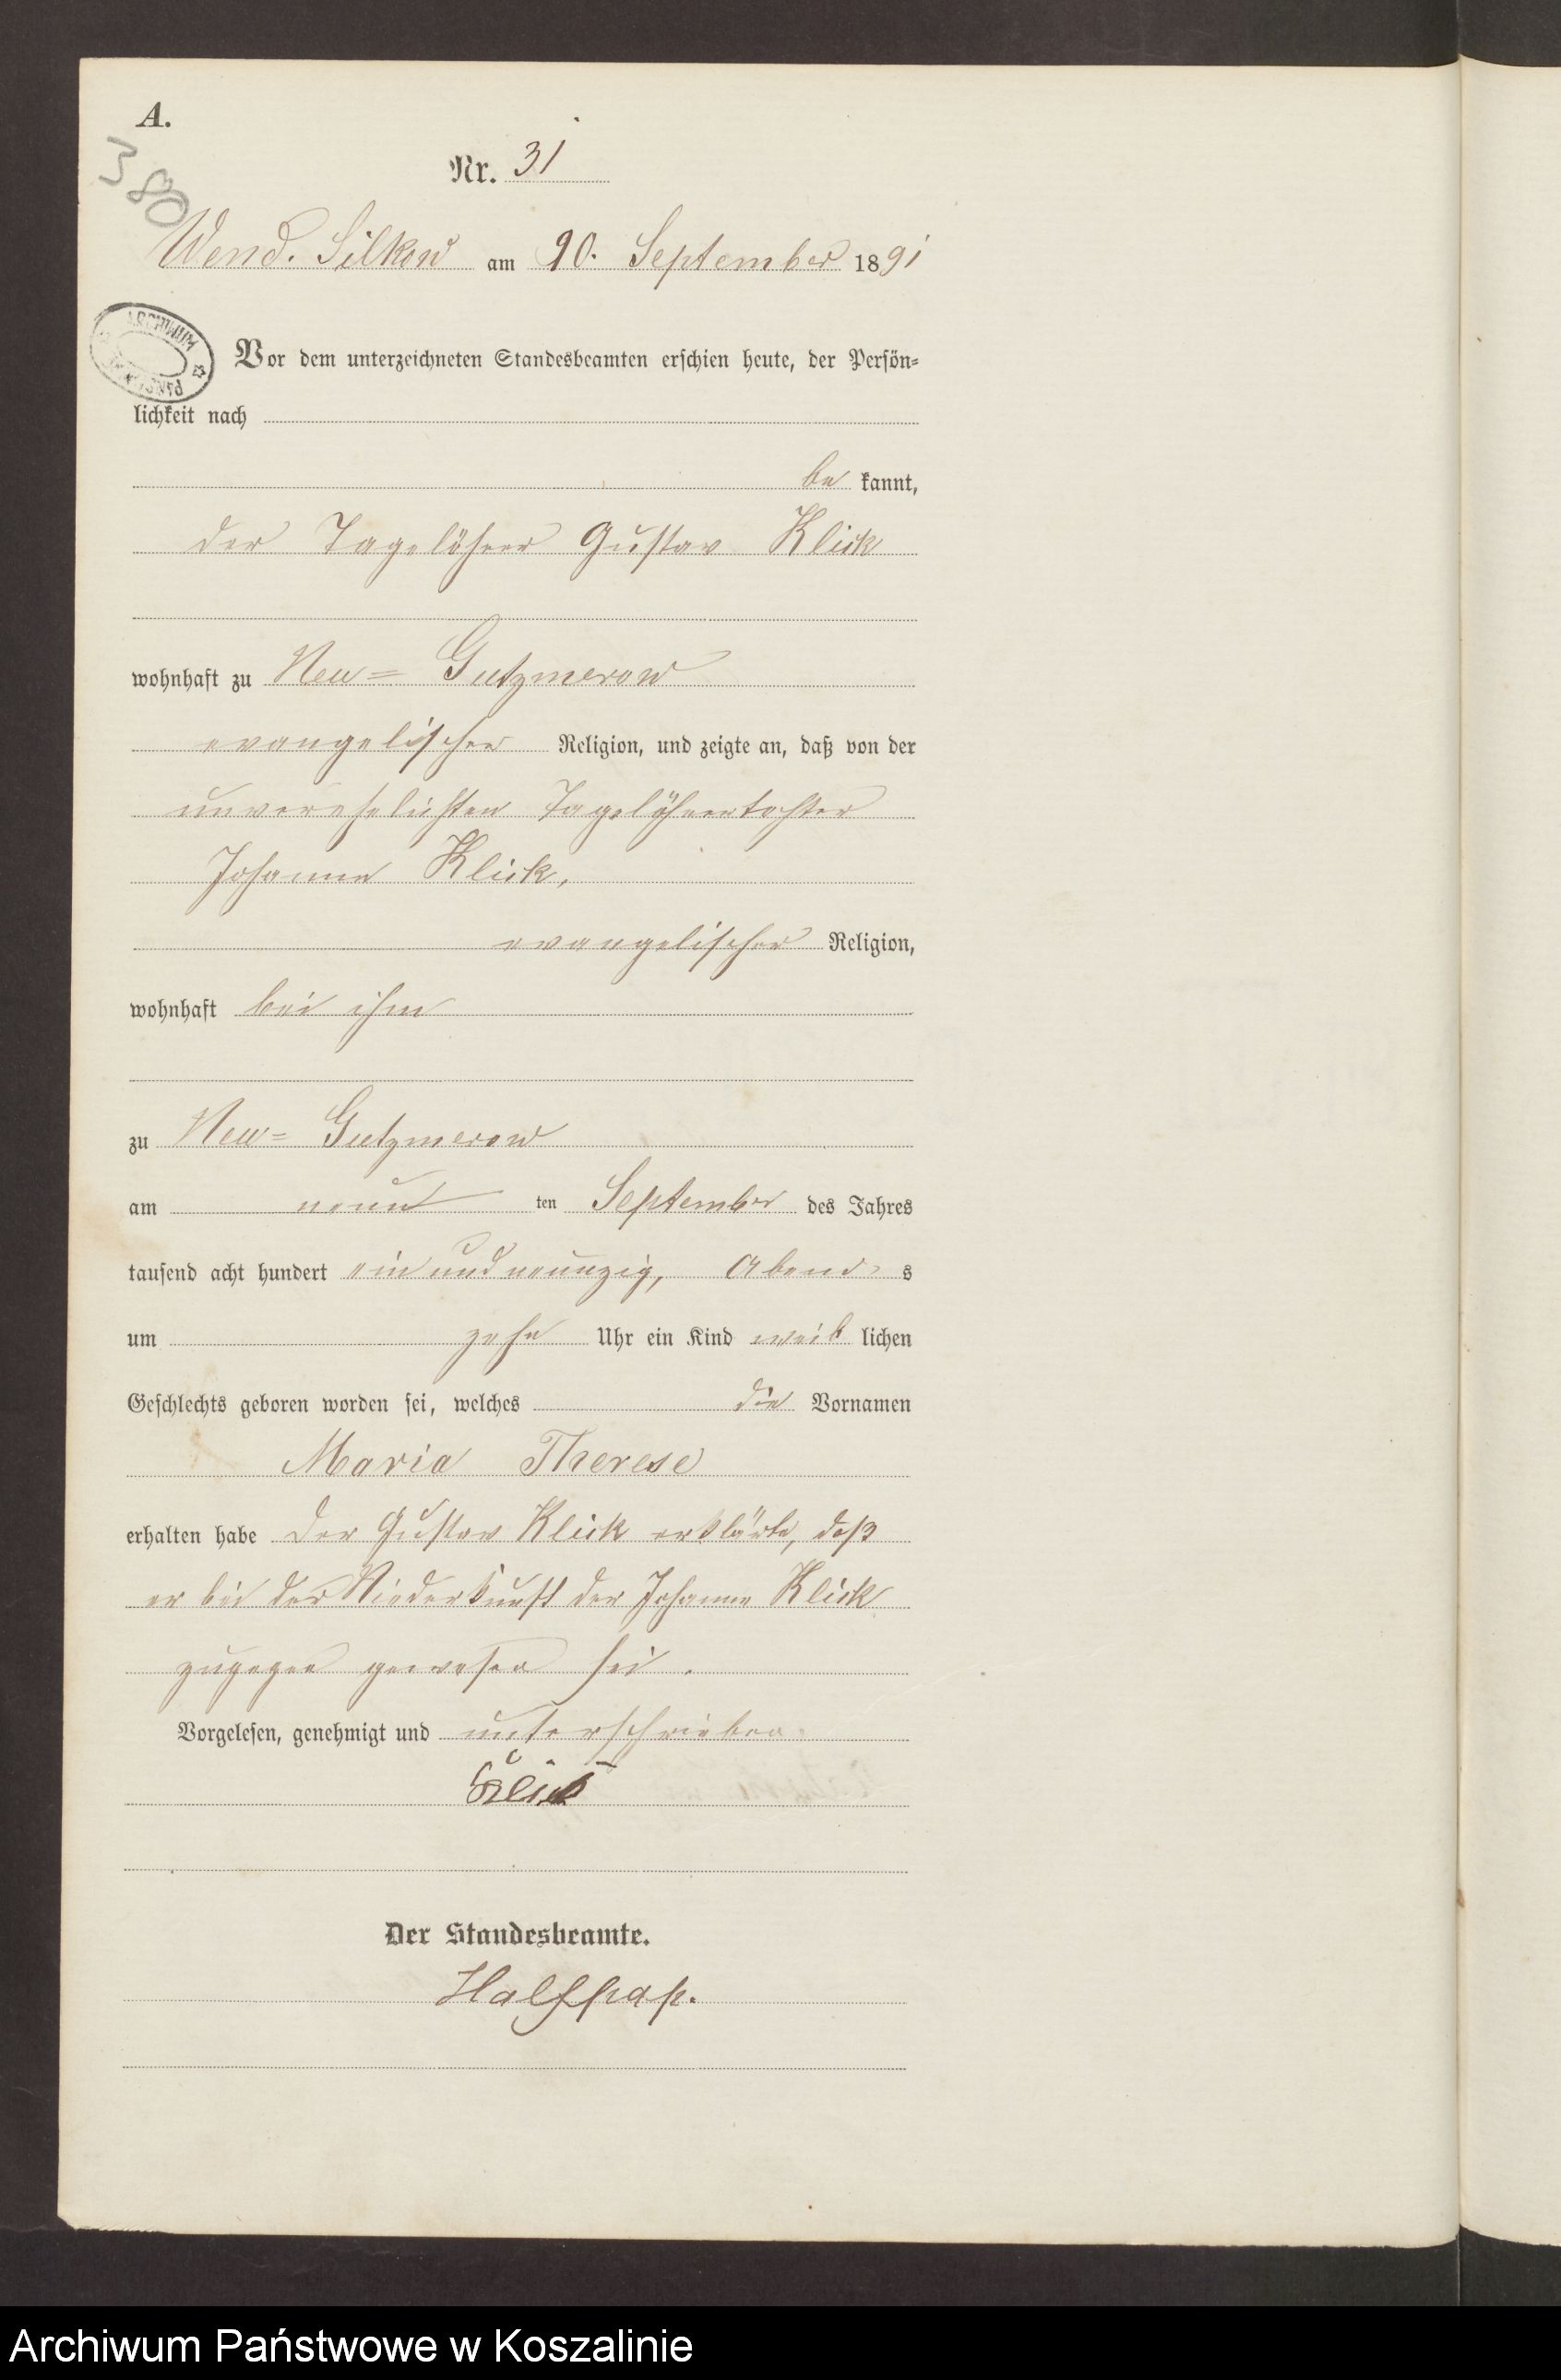 A.
380
Nr. 31
Wend. Silkow am 10. September 1891
ARCHIWUM
Vor dem unterzeichneten Standesbeamten erschien heute, der Persön=
lichkeit nach
be kannt,
der Tagelöhner Gustav Klick
wohnhaft zu Neu= Gutzmerow
evangelischer Religion, und zeigte an, daß von der
unverehelichten Tagelöhnertochter
Johanne Klick,
evangelischer Religion,
wohnhaft bei ihm
zu Neu= Gutzmerow
am neun ten September des Jahres
tausend acht hundert ein und neunzig, Abend s
um zehn Uhr ein Kind weib lichen
Geschlechts geboren worden sei, welches die Vornamen
Maria Therese
erhalten habe Der Gustav Klick erklärte, daß
er bei der Niederkunft der Johanne Klick
zugegen gewesen sei.
Vorgelesen, genehmigt und unterschrieben.
Klick
Der Standesbeamte.
Halffpap.
Archiwum Państwowe w Koszalinie